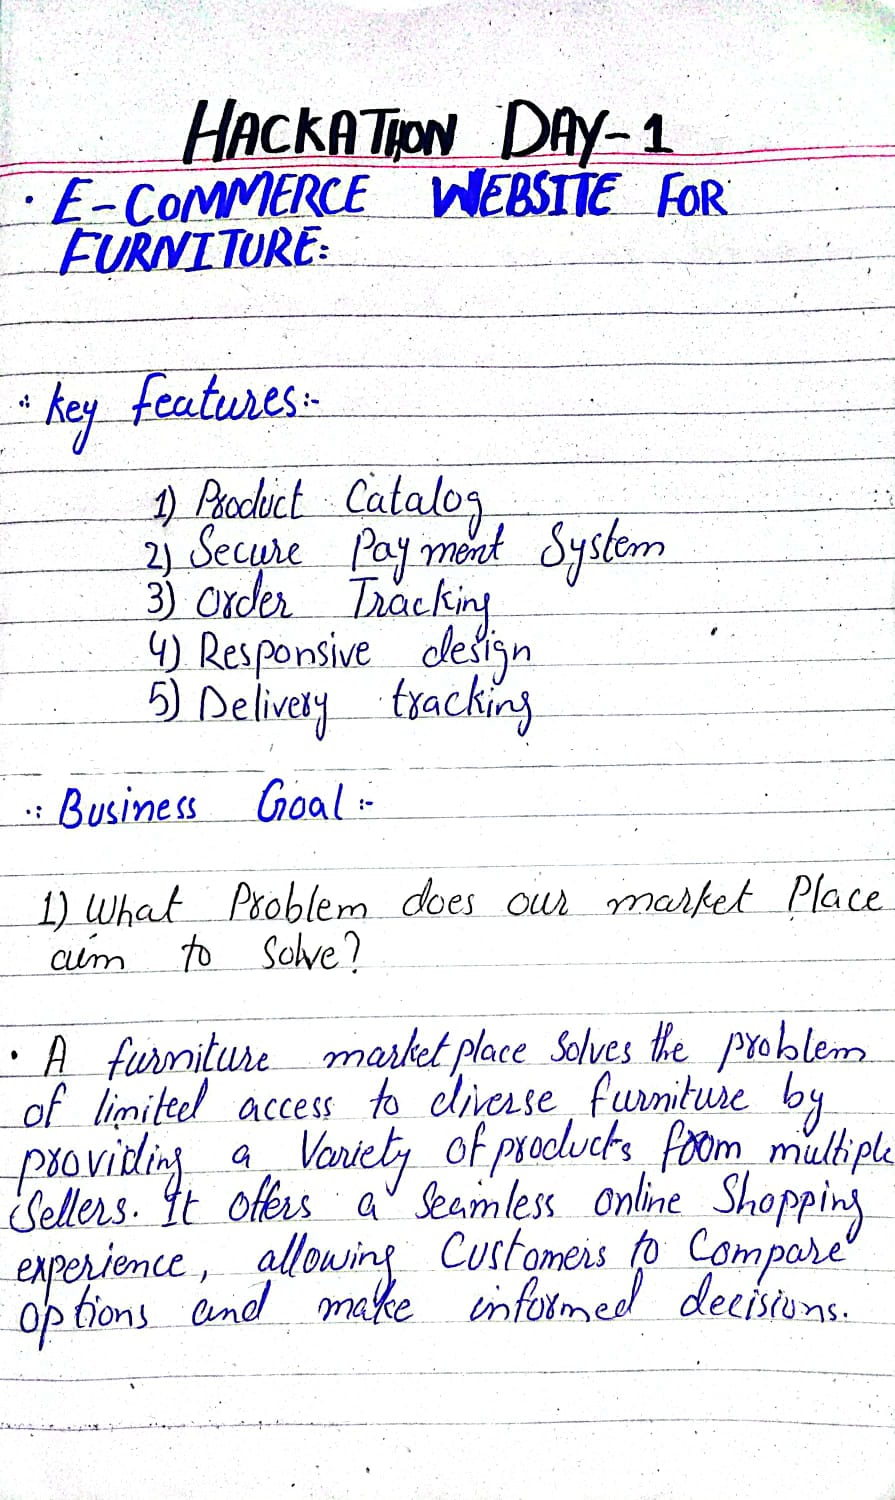 HACKATHON DAY-1
• E-COMMERCE WEBSITE FOR
FURNITURE:
key features:-
1) Product Catalog
2) Secure Payment System
3) Order Tracking
4) Responsive design
5) Delivery tracking
Business Goal:-
1) What Problem does our market Place
aim to Solve?
• A furniture marketplace Solves the problem
of limited access to diverse furniture by
providing a Variety of products from multiple
Sellers. It offers a Seamless online Shopping
experience, allowing Customers to Compare
options and make informed decisions.